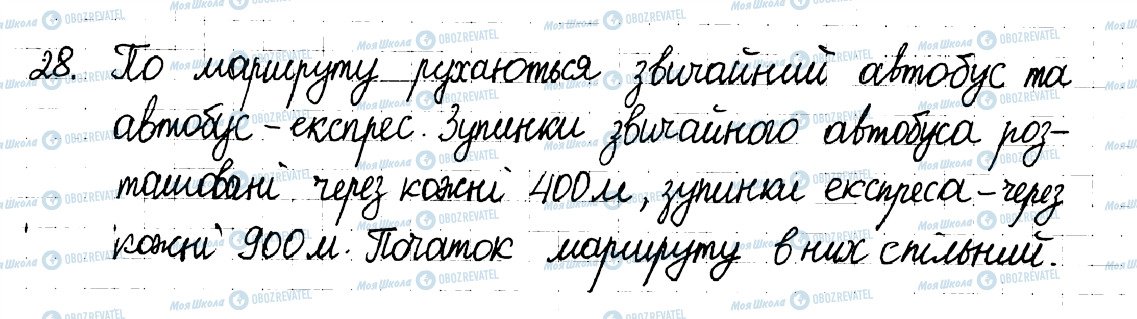 28. По маршруту рухаються звичайний автобус та
автобус-експрес. Зупинки звичайного автобуса роз-
ташовані через кожні 400м, зупинки експреса - через
кожні 900м. Початок маршруту в них спільний.